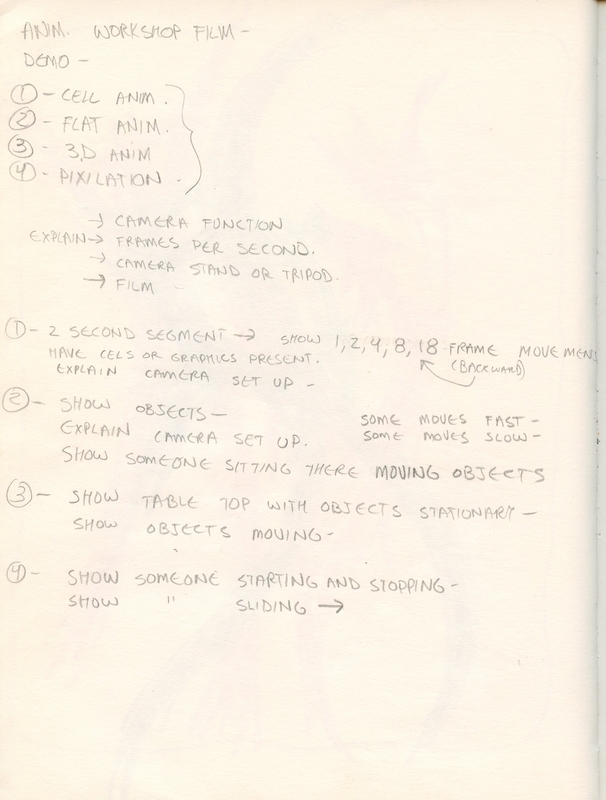 ANIM. WORKSHOP FILM -
DEMO -
① - CELL ANIM.
② - FLAT ANIM.
③ - 3,D ANIM
④ - PIXILATION .
→ CAMERA FUNCTION
EXPLAIN → FRAMES PER SECOND.
→ CAMERA STAND OR TRIPOD.
→ FILM -
① - 2 SECOND SEGMENT → SHOW 1, 2, 4, 8, 18 FRAME MOVEMENS
HAVE CELS OR GRAPHICS PRESENT. (BACKWARD)
EXPLAIN CAMERA SET UP -
② - SHOW OBJECTS - SOME MOVES FAST -
EXPLAIN CAMERA SET UP. SOME MOVES SLOW -
SHOW SOMEONE SITTING THERE MOVING OBJECTS
③ - SHOW TABLE TOP WITH OBJECTS STATIONARY -
SHOW OBJECTS MOVING -
④ - SHOW SOMEONE STARTING AND STOPPING -
SHOW " SLIDING →